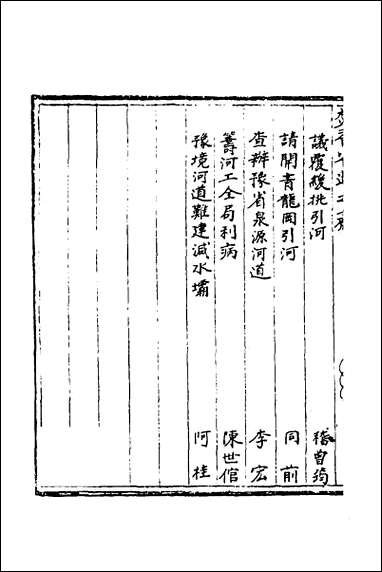 議覆緩挑引河 稽曾筠
請開青龍岡引河 同前
查辦豫省泉源河道 李宏
籌河工全局利病 陳世倌
豫境河道難建減水壩 阿桂